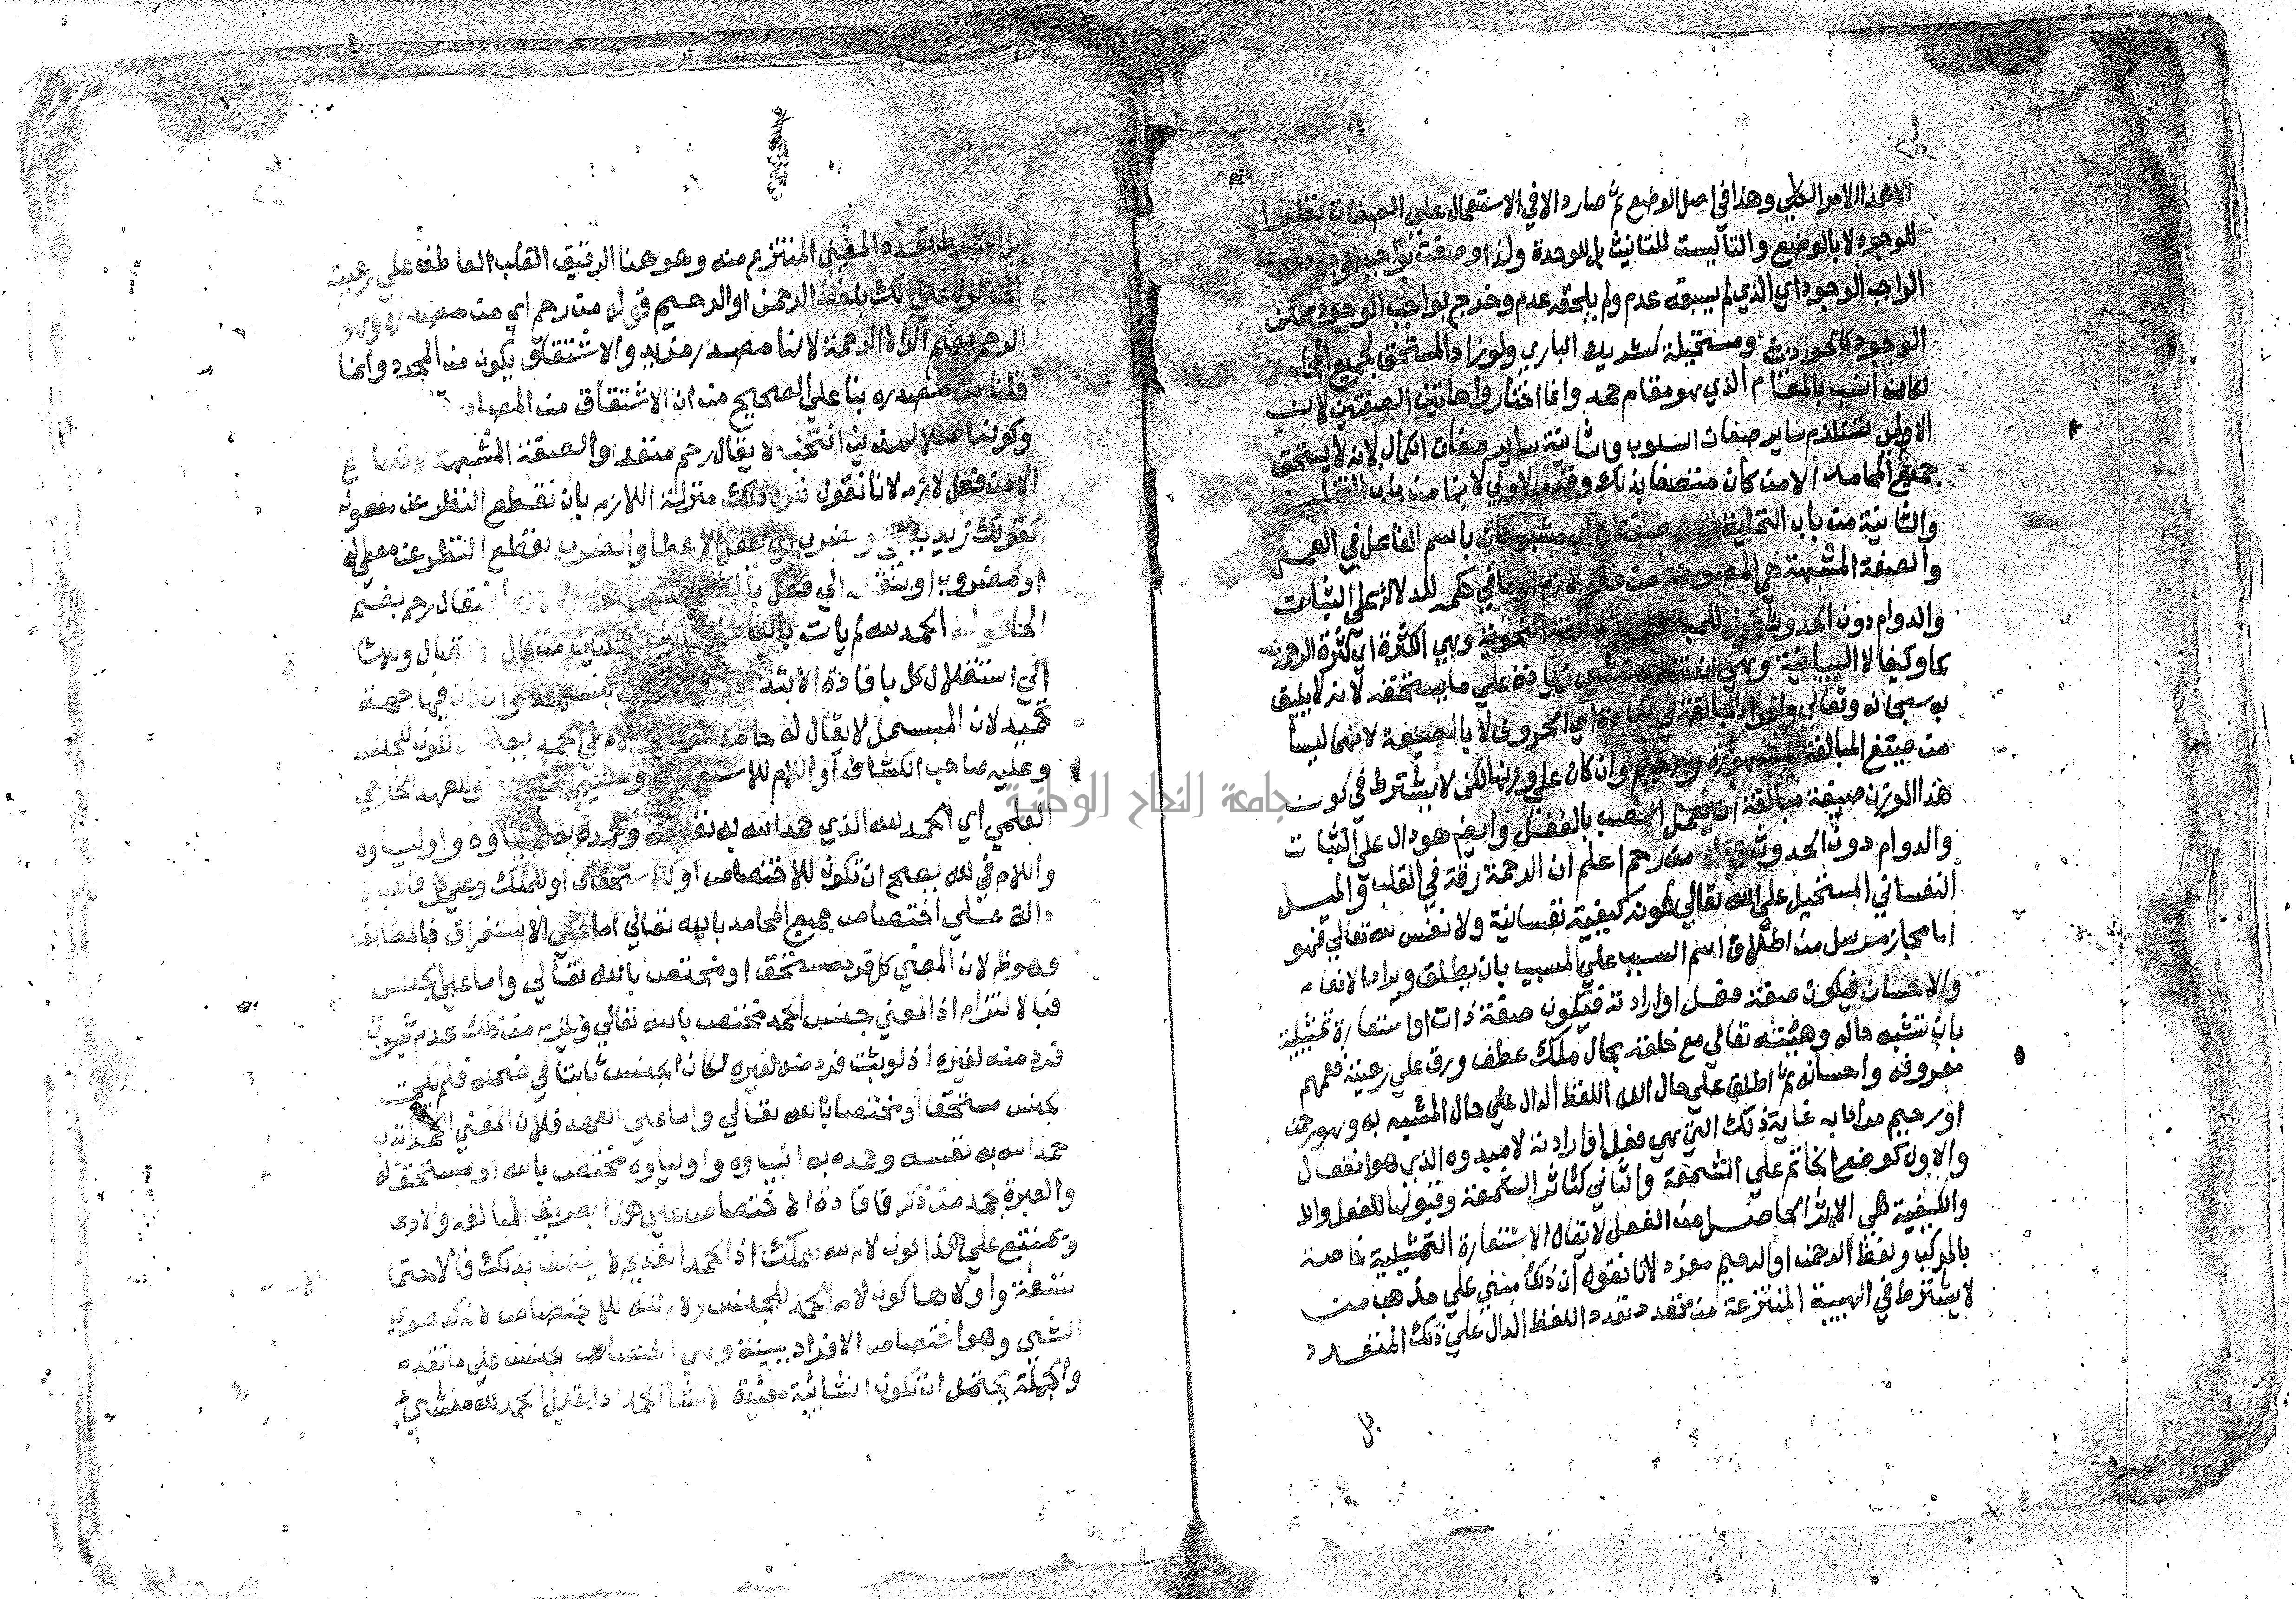 الا هذا الامر الكلي وهذا في اصل الوضع ثم صار دالا في الاستعمال علي الصفات نظرا
للوجود لا بالوضع والتا ليست للتانيث بل للوحدة ولذا وصفت بواجب الوجود
الواجب الوجود اي الذي لم يسبقه عدم ولم يلحقه عدم وخرج بواجب الوجود ممكن
الوجود كالحوادث ومستحيلة كشريك الباري ولو زاد المستحق لجميع المحامد
لكان انسب بالمقام الذي هو مقام حمد وانما اختاروا هاتين الصفتين لان
الاولي تستلزم ساير صفات السلوب والثانية ساير صفات الكمال لانه لا يستحق
جميع المحامد الا من كان متصفا بذلك وقدم الاولي لانها من باب التخلية
والثانية من باب التحلية صفتان اي مشبهتان باسم الفاعل في العمل
والصفة المشبهة هي المصوغة من فعل لازم او ما في حكمه للدلالة علي الثبات
والدوام دون الحدوث قوله للمبالغة المبالغة النحوية وهي الكثرة اي كثرة الرحمة
كما وكيفا لا البيانية وهي ان تنسب للشي زيادة علي ما يستحقه لانه لا يليق
به سبحانه وتعالي وافراد المبالغة في المادة اي الحروف لا بالصيغة لانهما ليسا
من صيغ المبالغة المشهورة والرحيم وان كان علي وزنها لكن لا يشترط في كون
هذا الوزن صيغة مبالغة ان يعمل النصب بالفعل وايضا هو دال علي الثبات
والدوام دون الحدوث قوله من رحم اعلم ان الرحمة رقة في القلب والميل
النفساني المستحيل علي الله تعالي لكونه كيفية نفسانية ولا نفس لله تعالي فهو
اما مجاز مرسل من اطلاق اسم السبب علي المسبب بان يطلق ويراد الانعام
والاحسان فيكون صفة فعل او ارادته فيكون صفة ذات او استعارة تمثيلية
بان تشبه حاله وهيئته تعالي مع خلقه بحال ملك عطف ورق علي رعيته فعمهم
معروفه واحسانه ثم اطلق علي حال الله اللفظ الدال علي حال المشبه به وهو رحمن
او رحيم مرادا به غاية ذلك التي هي فعل او ارادته لا مبدوه الذي هو انفعال
والاول كوضع الخاتم علي الشمعة والثاني كتاثر الشمعة وقبولها للفعل والا
والكيفية هي الاثر الحاصل من الفعل لا يقال الاستعارة التمثيلية خاصة
بالمركب ولفظ الرحمن او الرحيم مفرد لانا نقول ان ذلك مبني علي مذهب من
لا يشترط في الهيية المنتزعة من متعدد تعدد اللفظ الدال علي ذلك المتعدد
بل
بل الشرط تعدد المعني المنتزع منه وهو هنا الرقيق القلب العاطف علي رعيته
المدلول علي ذلك بلفظ الرحمن او الرحيم قوله من رحم اي من مصدره وهو
الرحم بضم الرا لا الرحمة لانها مصدر مزيد والاشتقاق يكون من المجرد وانما
قلنا من مصدره بنا علي الصحيح من ان الاشتقاق من المصادر
وكونه اصلا لا يقال رحم متعد والصفة المشبهة لا تصاغ
الا من فعل لازم لانا نقول نزل ذلك منزلة اللازم بان نقطع النظر عن مفعوله
كقولك زيد يعطي ويضرب اي يفعل الاعطا والضرب بقطع النظر عن معطي له
او مضروب او بنقله الي فعل فيقال رحم بضم
الحا قوله الحمد لله لم يات بالعاطف
الي استقلال كل بافادة الابتدا وان كان فيها جهة
تحميد لان المبسمل لا يقال له حامد في الحمد تكون للجنس
وعليه صاحب الكشاف او اللام للاستغراق وللعهد الخارجي
العلمي اي الحمد لله الذي حمد الله به نفسه وحمده به انبياوه واولياوه
واللام في لله يصح ان تكون للاختصاص او للاستحقاق او للملك وعلي كل
دالة علي اختصاص جميع المحامد بالله تعالي اما علي الاستغراق فبالمطابقة
وهو ظ لان المعني كل فرد مستحق او مختص بالله تعالي واما علي الجنس
فبالالتزام اذ المعني جنس الحمد مختص بالله تعالي ويلزم من ذلك عدم ثبوت
فرد منه لغيره اذ لو ثبت فرد منه لغيره لكان الجنس ثابتا في ضمنه فلم يكن
الجنس مستحقا او مختصا بالله تعالي واما علي العهد فلان المعني الحمد الذي
حمد الله به نفسه وحمده به انبياوه واولياوه مختص بالله او مستحق له
والعبرة بحمد من ذكر فافادة الاختصاص علي هذا بطريق المبالغة والادعا
ويمتنع علي هذا كون لام لله للملك اذ الحمد القديم لا يتصف بذلك فالاحتما
تسعة واولاها كون لام الحمد للجنس ولام لله للاختصاص لانه كدعوي
الشي وهو اختصاص الافراد ببينة وهي اختصاص الجنس علي ما تقدم
والجملة يحتمل ان تكون انشائية مفيدة لانشا الحمد الحمد لله منشي
جامعة النجاح الوطنية